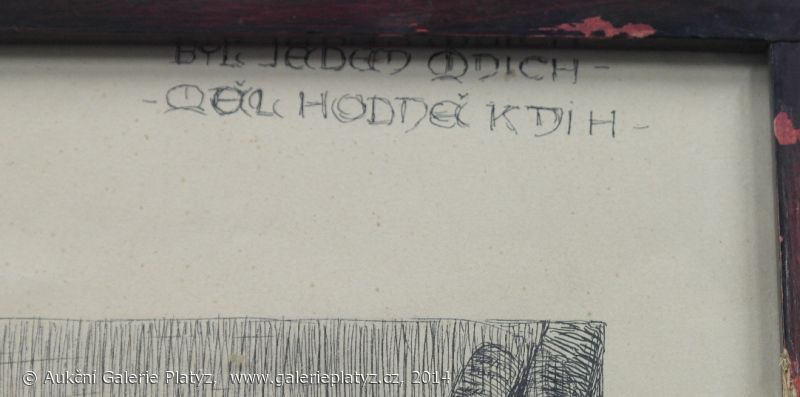 BYL JEDEN MNICH –
– MĚL HODNĚ KNIH –
© Aukční Galerie Platýz, www.galerieplatyz.cz, 2014